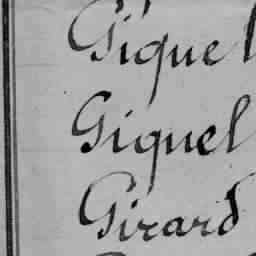 Giquel
Giquel
Girard